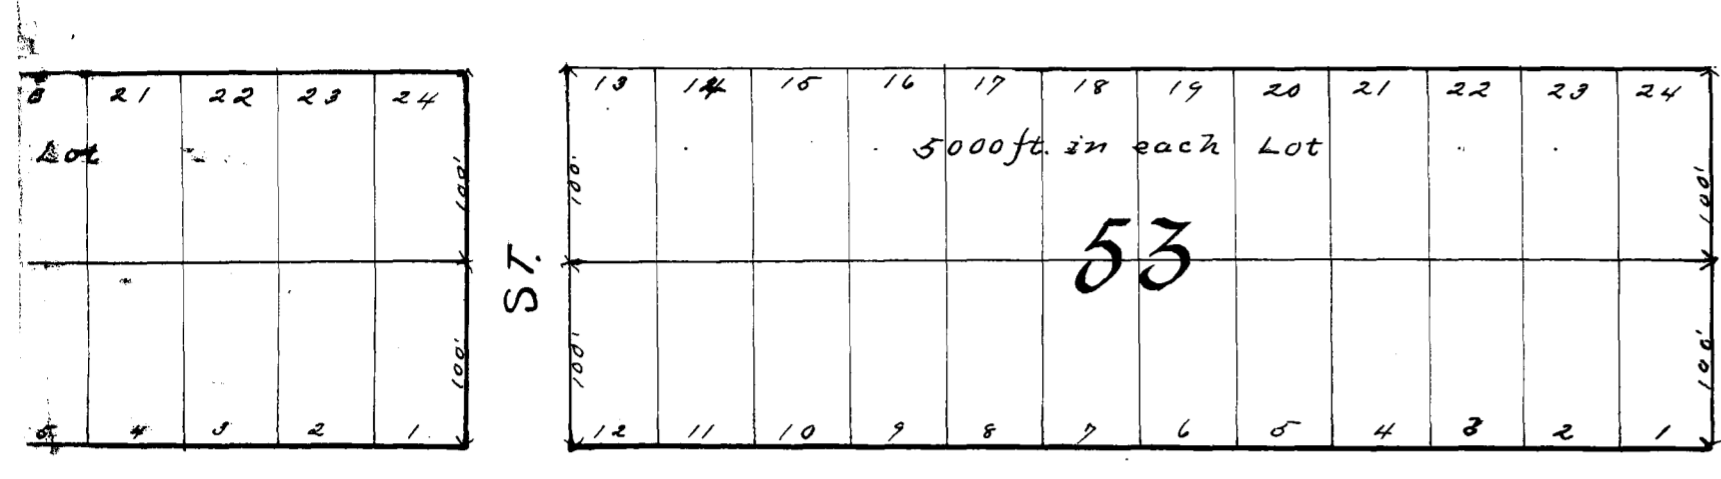 21 22 23 24
Lot
100'
100'
5 4 3 2 1
ST.
13 14 15 16 17 18 19 20 21 22 23 24
5000ft. in each Lot
100' 100'
53
100' 100'
12 11 10 9 8 7 6 5 4 3 2 1